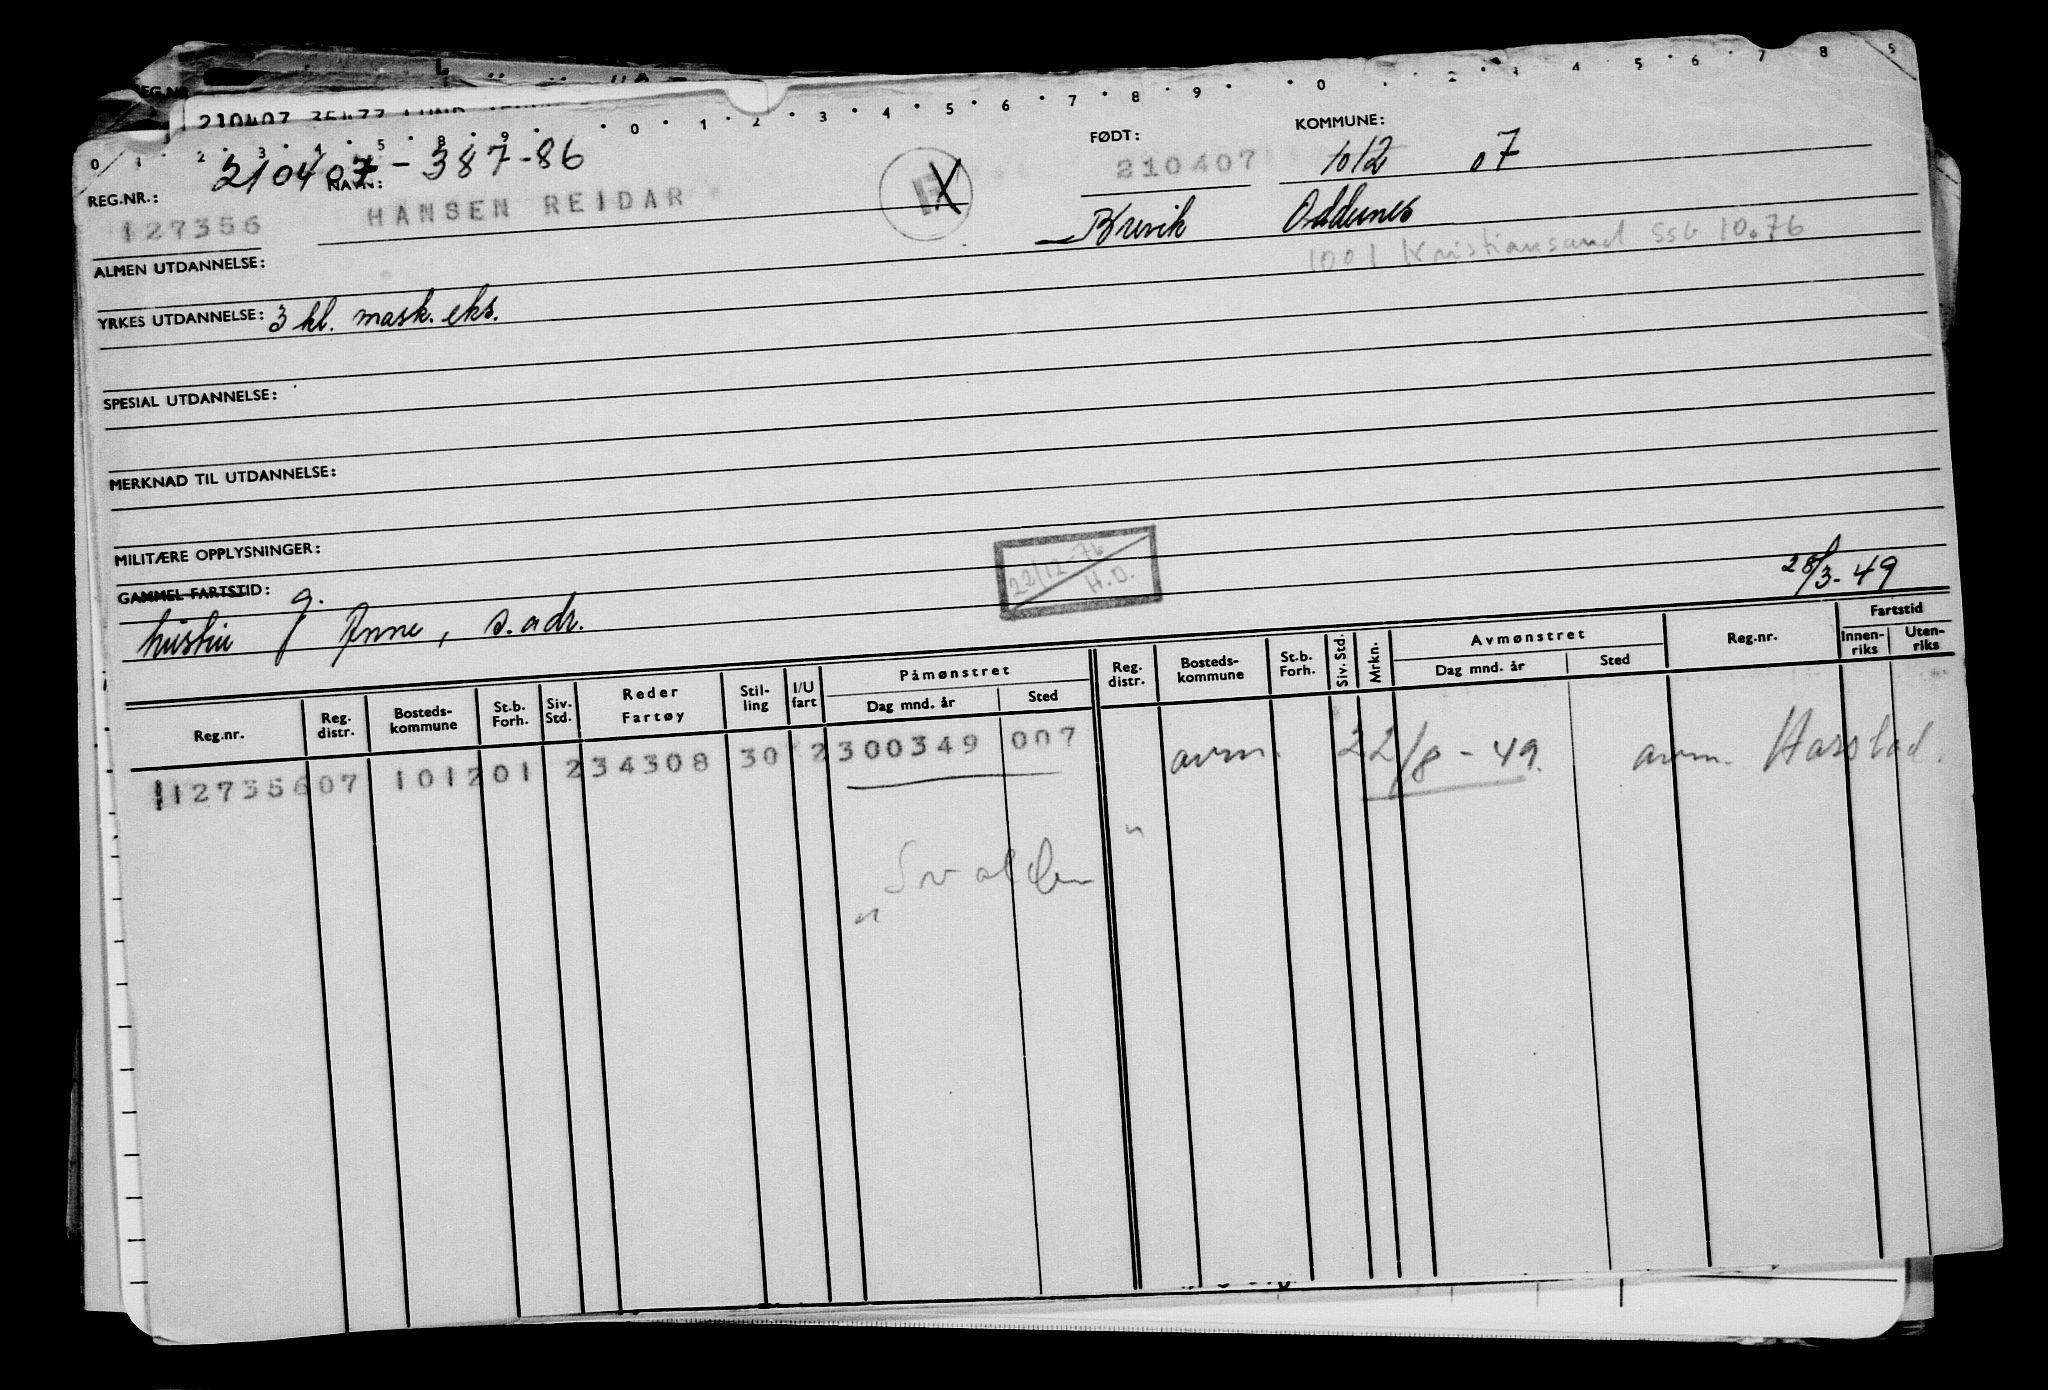 REG.NR
0 1 2 3 4 5 8 9 0 1 2 3 4 5 6 7 8 9 0 2 3 4 5 6 7 8 5
210407-387-86
REG.NR.: NAVN: FØDT: KOMMUNE:
127356 HANSEN REIDAR 210407 1012 07
Brevik Oddernes
1001 Kristiansand SSB 10.76
ALMEN UTDANNELSE:
YRKES UTDANNELSE: 3 kl. mask. eks.
SPESIAL UTDANNELSE:
MERKNAD TIL UTDANNELSE:
MILITÆRE OPPLYSNINGER:
22/12-76
H.O.
GAMMEL FARTSTID: g. 28/3-49
hustru Jenne, s. adr.
Reg.nr. Reg. distr. Bosteds-kommune St.b. Forh. Siv. Std. Reder Fartøy Stil-ling I/U fart Påmønstret Dag mnd. år Sted Reg. distr. Bosteds-kommune St.b. Forh. Siv. Std. Mrkn. Avmønstret Dag mnd. år Sted Reg.nr. Fartstid Innen-riks Uten-riks
112735607 101201 234308 30 2300349 007 avm. 22/8-49. avm. Harstad.
"Svalden"